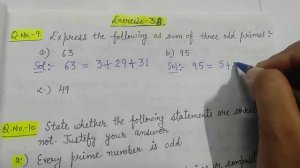 Exercise-3B
Q.No-9. Express the following as sum of three odd primes:-
a.) 63 b.) 95
Sol:- 63 = 3+29+31 Sol:- 95 = 5+
c.) 49
Q.No-10. State whether the following statements are correct
not. Justify your answer.
a. Every prime number is odd.